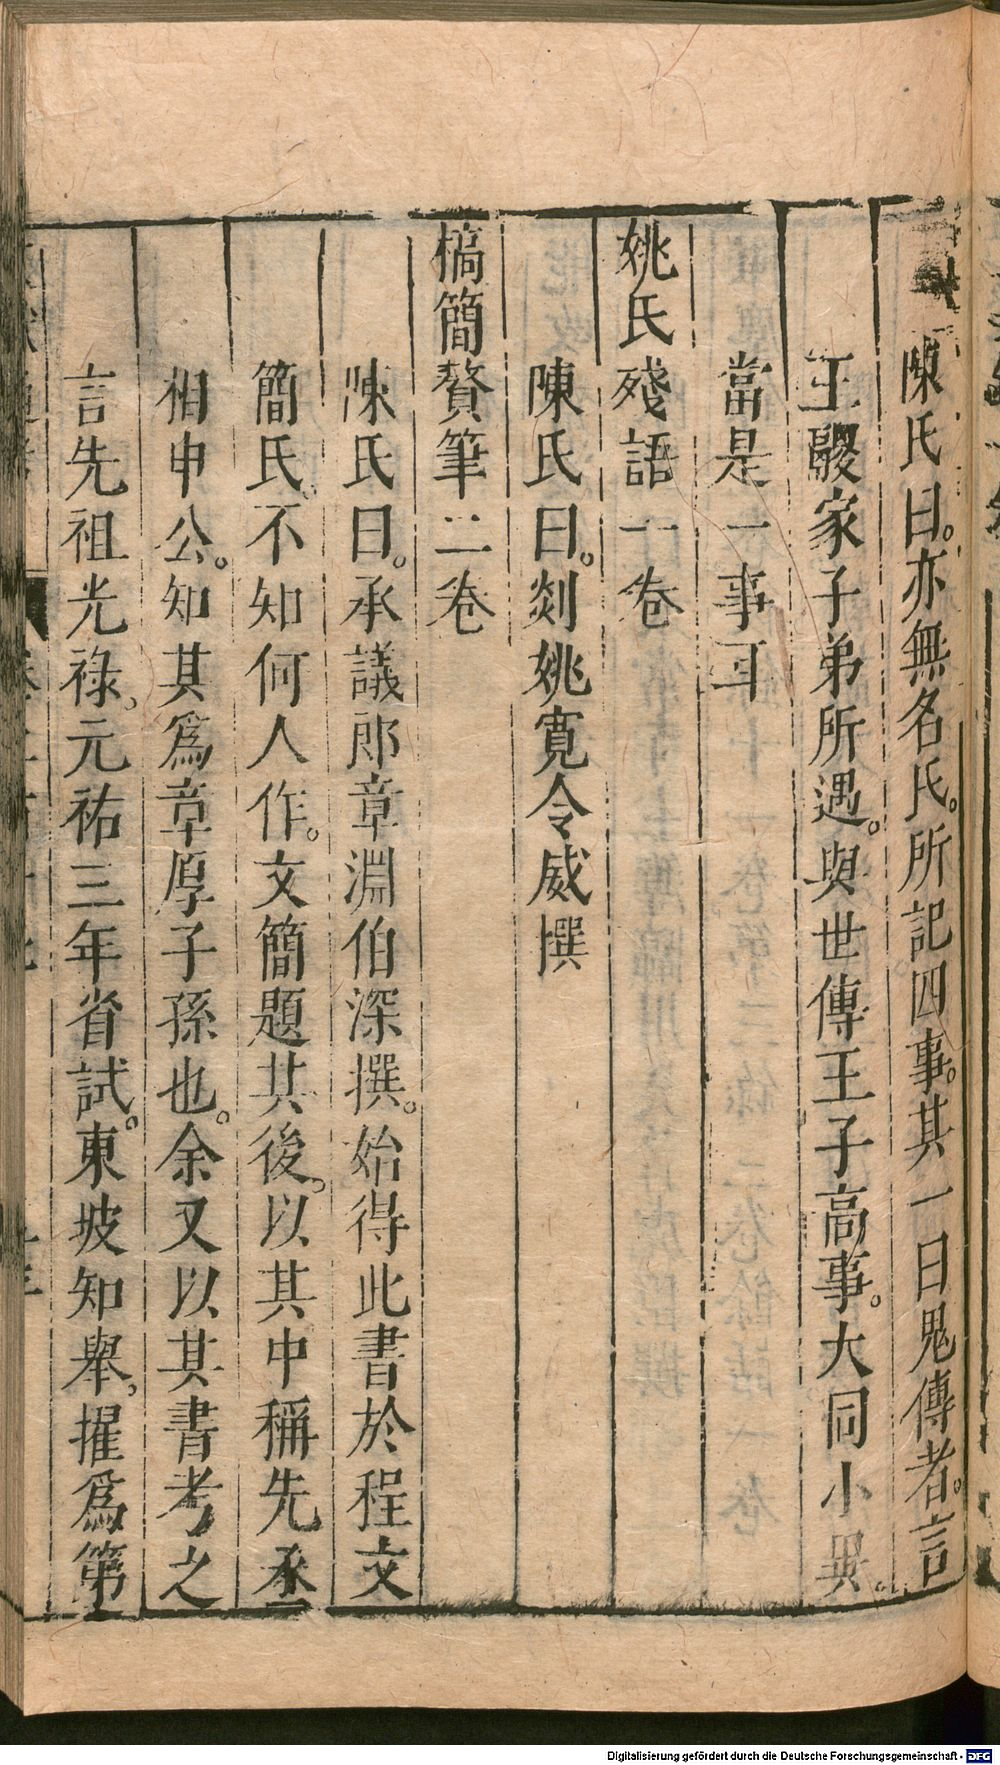 陳氏曰。亦無名氏。所記四事。其一曰鬼傳者。言
王騣家子弟所遇。與世傳王子高事。大同小異。
當是一事耳
姚氏殘語一卷
陳氏曰。剡姚寬令威撰
槁簡贅筆二卷
陳氏曰。承議郎章淵伯深撰。始得此書於程文
簡氏。不知何人作。文簡題其後。以其中稱先丞
相申公。知其爲章厚子孫也。余又以其書考之
言先祖光祿。元祐三年省試。東坡知舉。擢爲第
Digitalisierung gefördert durch die Deutsche Forschungsgemeinschaft - DFG